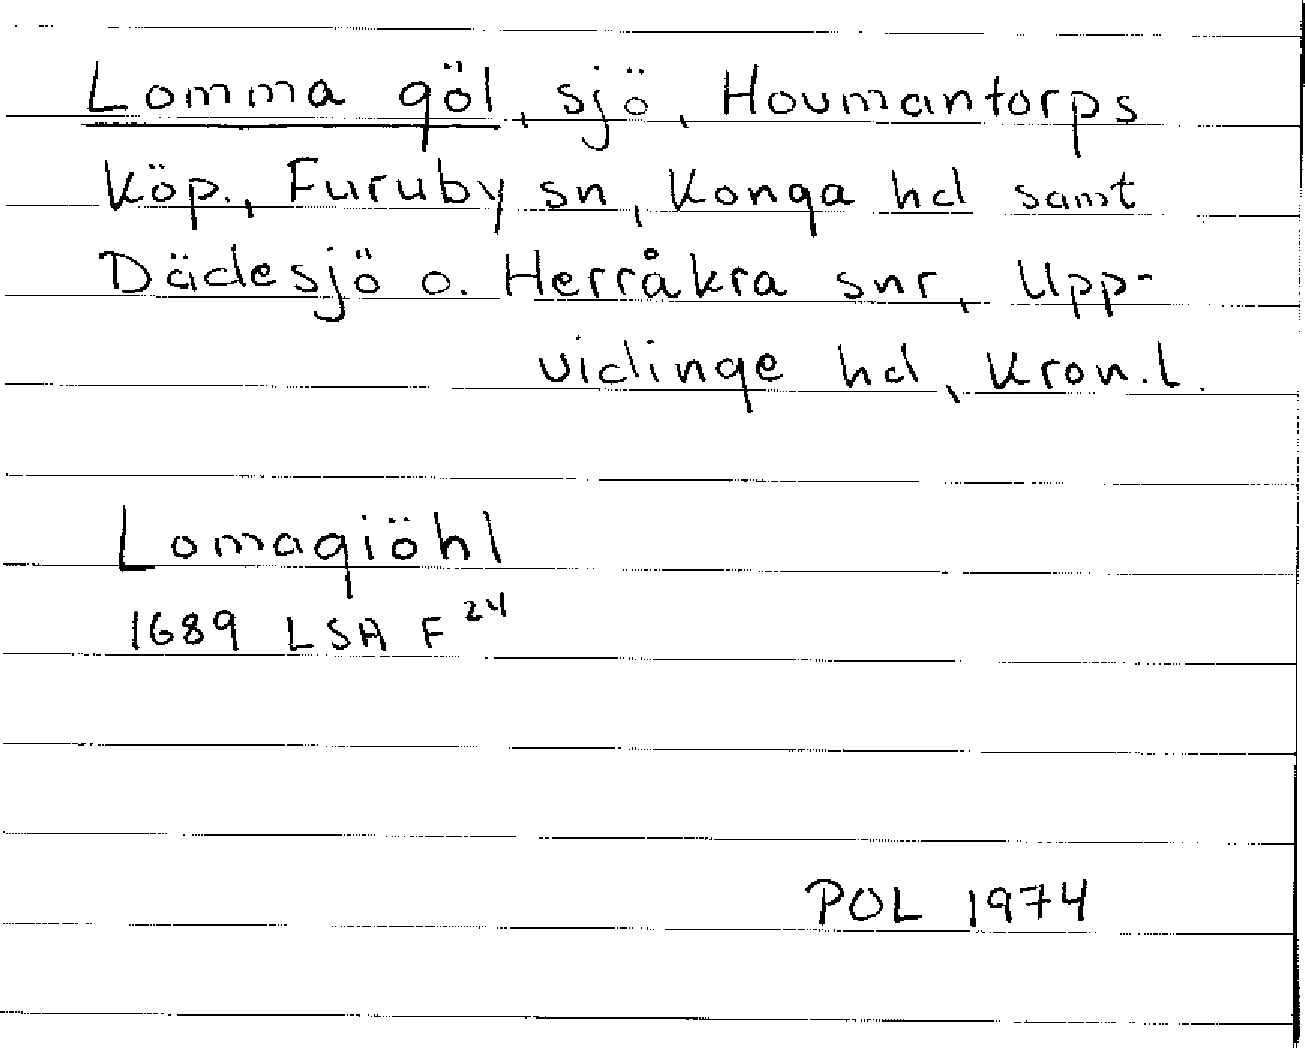 Lomma göl, sjö, Hovmantorps
köp., Furuby sn, Konga hd samt
Dädesjö o. Herråkra snr, Upp-
vidinge hd, Kron. l.
Lomagiöhl
1689 LSA F 24
POL 1974